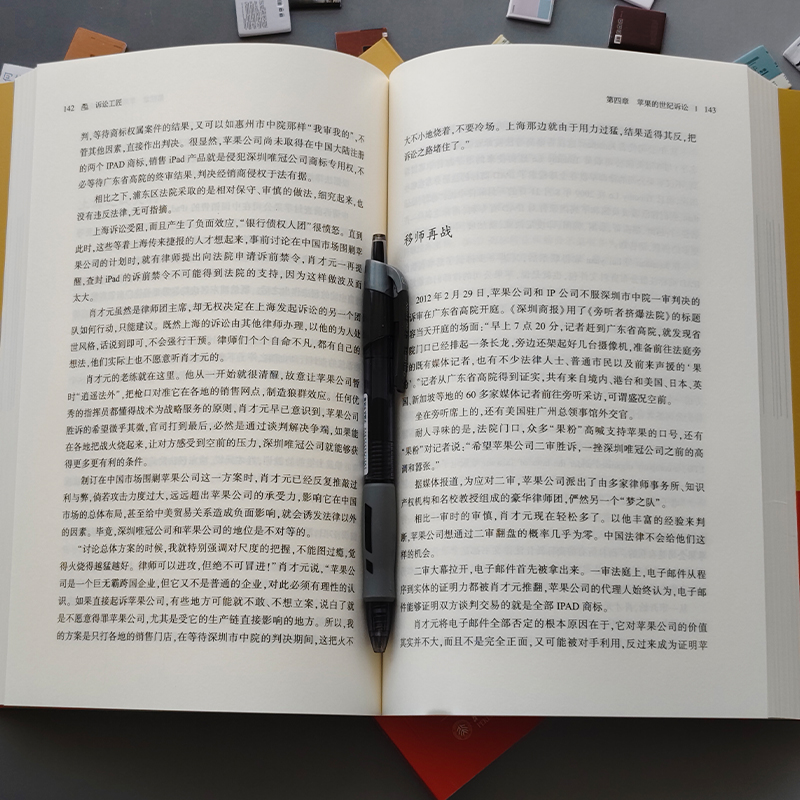 142 诉讼工匠
判，等待商标权属案件的结果，又可以如惠州市中院那样“我审我的”，不
管其他因素，直接作出判决。很显然，苹果公司尚未取得在中国大陆注册
的两个 IPAD 商标，销售 iPad 产品就是侵犯深圳唯冠公司商标专用权，不
必等待广东省高院的终审结果，判决经销商侵权于法有据。
相比之下，浦东区法院采取的是相对保守、审慎的做法，细究起来，也
没有违反法律，无可指摘。
上海诉讼受阻，而且产生了负面效应，“银行债权人团”很愤怒。直到
此时，这些等着上海传来捷报的人才想起来，事前讨论在中国市场围剿苹
果公司的计划时，就有律师提出向法院申请诉前禁令，肖才元一再提
醒，查封 iPad 的诉前禁令不可能得到法院的支持，因为这样做波及面
太大。
肖才元虽然是律师团主席，却无权决定在上海发起诉讼的另一个团
队如何行动，只能建议。既然上海的诉讼由其他律师办理，以他的为人处
世风格，话说到即可，不会强行干预。律师们个个自命不凡，都有自己的
想法，他们实际上也不愿意听肖才元的。
肖才元的老练就在这里。他从一开始就很清醒，故意让苹果公司暂
时“逍遥法外”，把枪口对准它在各地的销售网点，制造狼群效应。任何优
秀的指挥员都懂得战术为战略服务的原则，肖才元早已意识到，苹果公司
胜诉的希望微乎其微，官司打到最后，必然是通过谈判解决争端，如果能
在各地把战火烧起来，让对方感受到空前的压力，深圳唯冠公司就能够获
得更多更有利的条件。
制订在中国市场围剿苹果公司这一方案时，肖才元已经反复推敲过
利与弊，倘若攻击力度过大，远远超出苹果公司的承受力，影响它在中国
市场的总体布局，甚至给中美贸易关系造成负面影响，就会诱发法律以外
的因素。毕竟，深圳唯冠公司和苹果公司的地位是不对等的。
“讨论总体方案的时候，我就特别强调对尺度的把握，不能图过瘾，觉
得火烧得越猛越好。律师可以进攻，但绝不可冒进！”肖才元说，“苹果公
司是一个巨无霸跨国企业，但它又不是普通的企业，对此必须有理性的认
识。如果直接起诉苹果公司，有些地方可能就不敢、不想立案，说白了就
是不愿意得罪苹果公司，尤其是受它的生产链直接影响的地方。所以，我
的方案是只打各地的销售门店，在等待深圳市中院的判决期间，这把火不
第四章 苹果的世纪诉讼 | 143
大不小地烧着，不要冷场。上海那边就由于用力过猛，结果适得其反，把
诉讼之路堵住了。”
移师再战
2012 年 2 月 29 日，苹果公司和 IP 公司不服深圳市中院一审判决的
诉审在广东省高院开庭。《深圳商报》用了《旁听者挤爆法院》的标题
容当天开庭的场面：“早上 7 点 20 分，记者赶到广东省高院，就发现省
院门口已经排起一条长龙，旁边还架起好几台摄像机，准备前往法庭旁
的既有媒体记者，也有不少法律人士、普通市民以及前来声援的‘果
’。”记者从广东省高院得到证实，共有来自境内、港台和美国、日本、英
国、新加坡等地的 60 多家媒体记者前往旁听采访，可谓盛况空前。
坐在旁听席上的，还有美国驻广州总领事馆外交官。
耐人寻味的是，法院门口，众多“果粉”高喊支持苹果的口号，还有
“果粉”对记者说：“希望苹果公司二审胜诉，一挫深圳唯冠公司之前的高
调和嚣张。”
据媒体报道，为应对二审，苹果公司派出了由多家律师事务所、知识
产权机构和名校教授组成的豪华律师团，俨然另一个“梦之队”。
相比一审时的审慎，肖才元现在轻松多了。以他丰富的经验来判
断，苹果公司想通过二审翻盘的概率几乎为零。中国法律不会给他们这
样的机会。
二审大幕拉开，电子邮件首先被拿出来。一审法庭上，电子邮件从程
序到实体的证明力都被肖才元推翻，苹果公司的代理人始终认为，电子邮
件能够证明双方谈判交易的就是全部 IPAD 商标。
肖才元将电子邮件全部否定的根本原因在于，它对苹果公司的价值
其实并不大，而且不是完全正面，又可能被对手利用，反过来成为证明苹